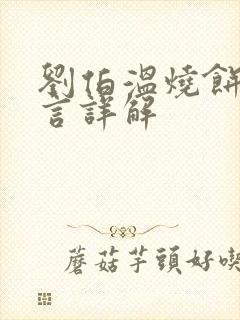 劉伯溫燒餅
言詳解
蘑菇芋頭好喫